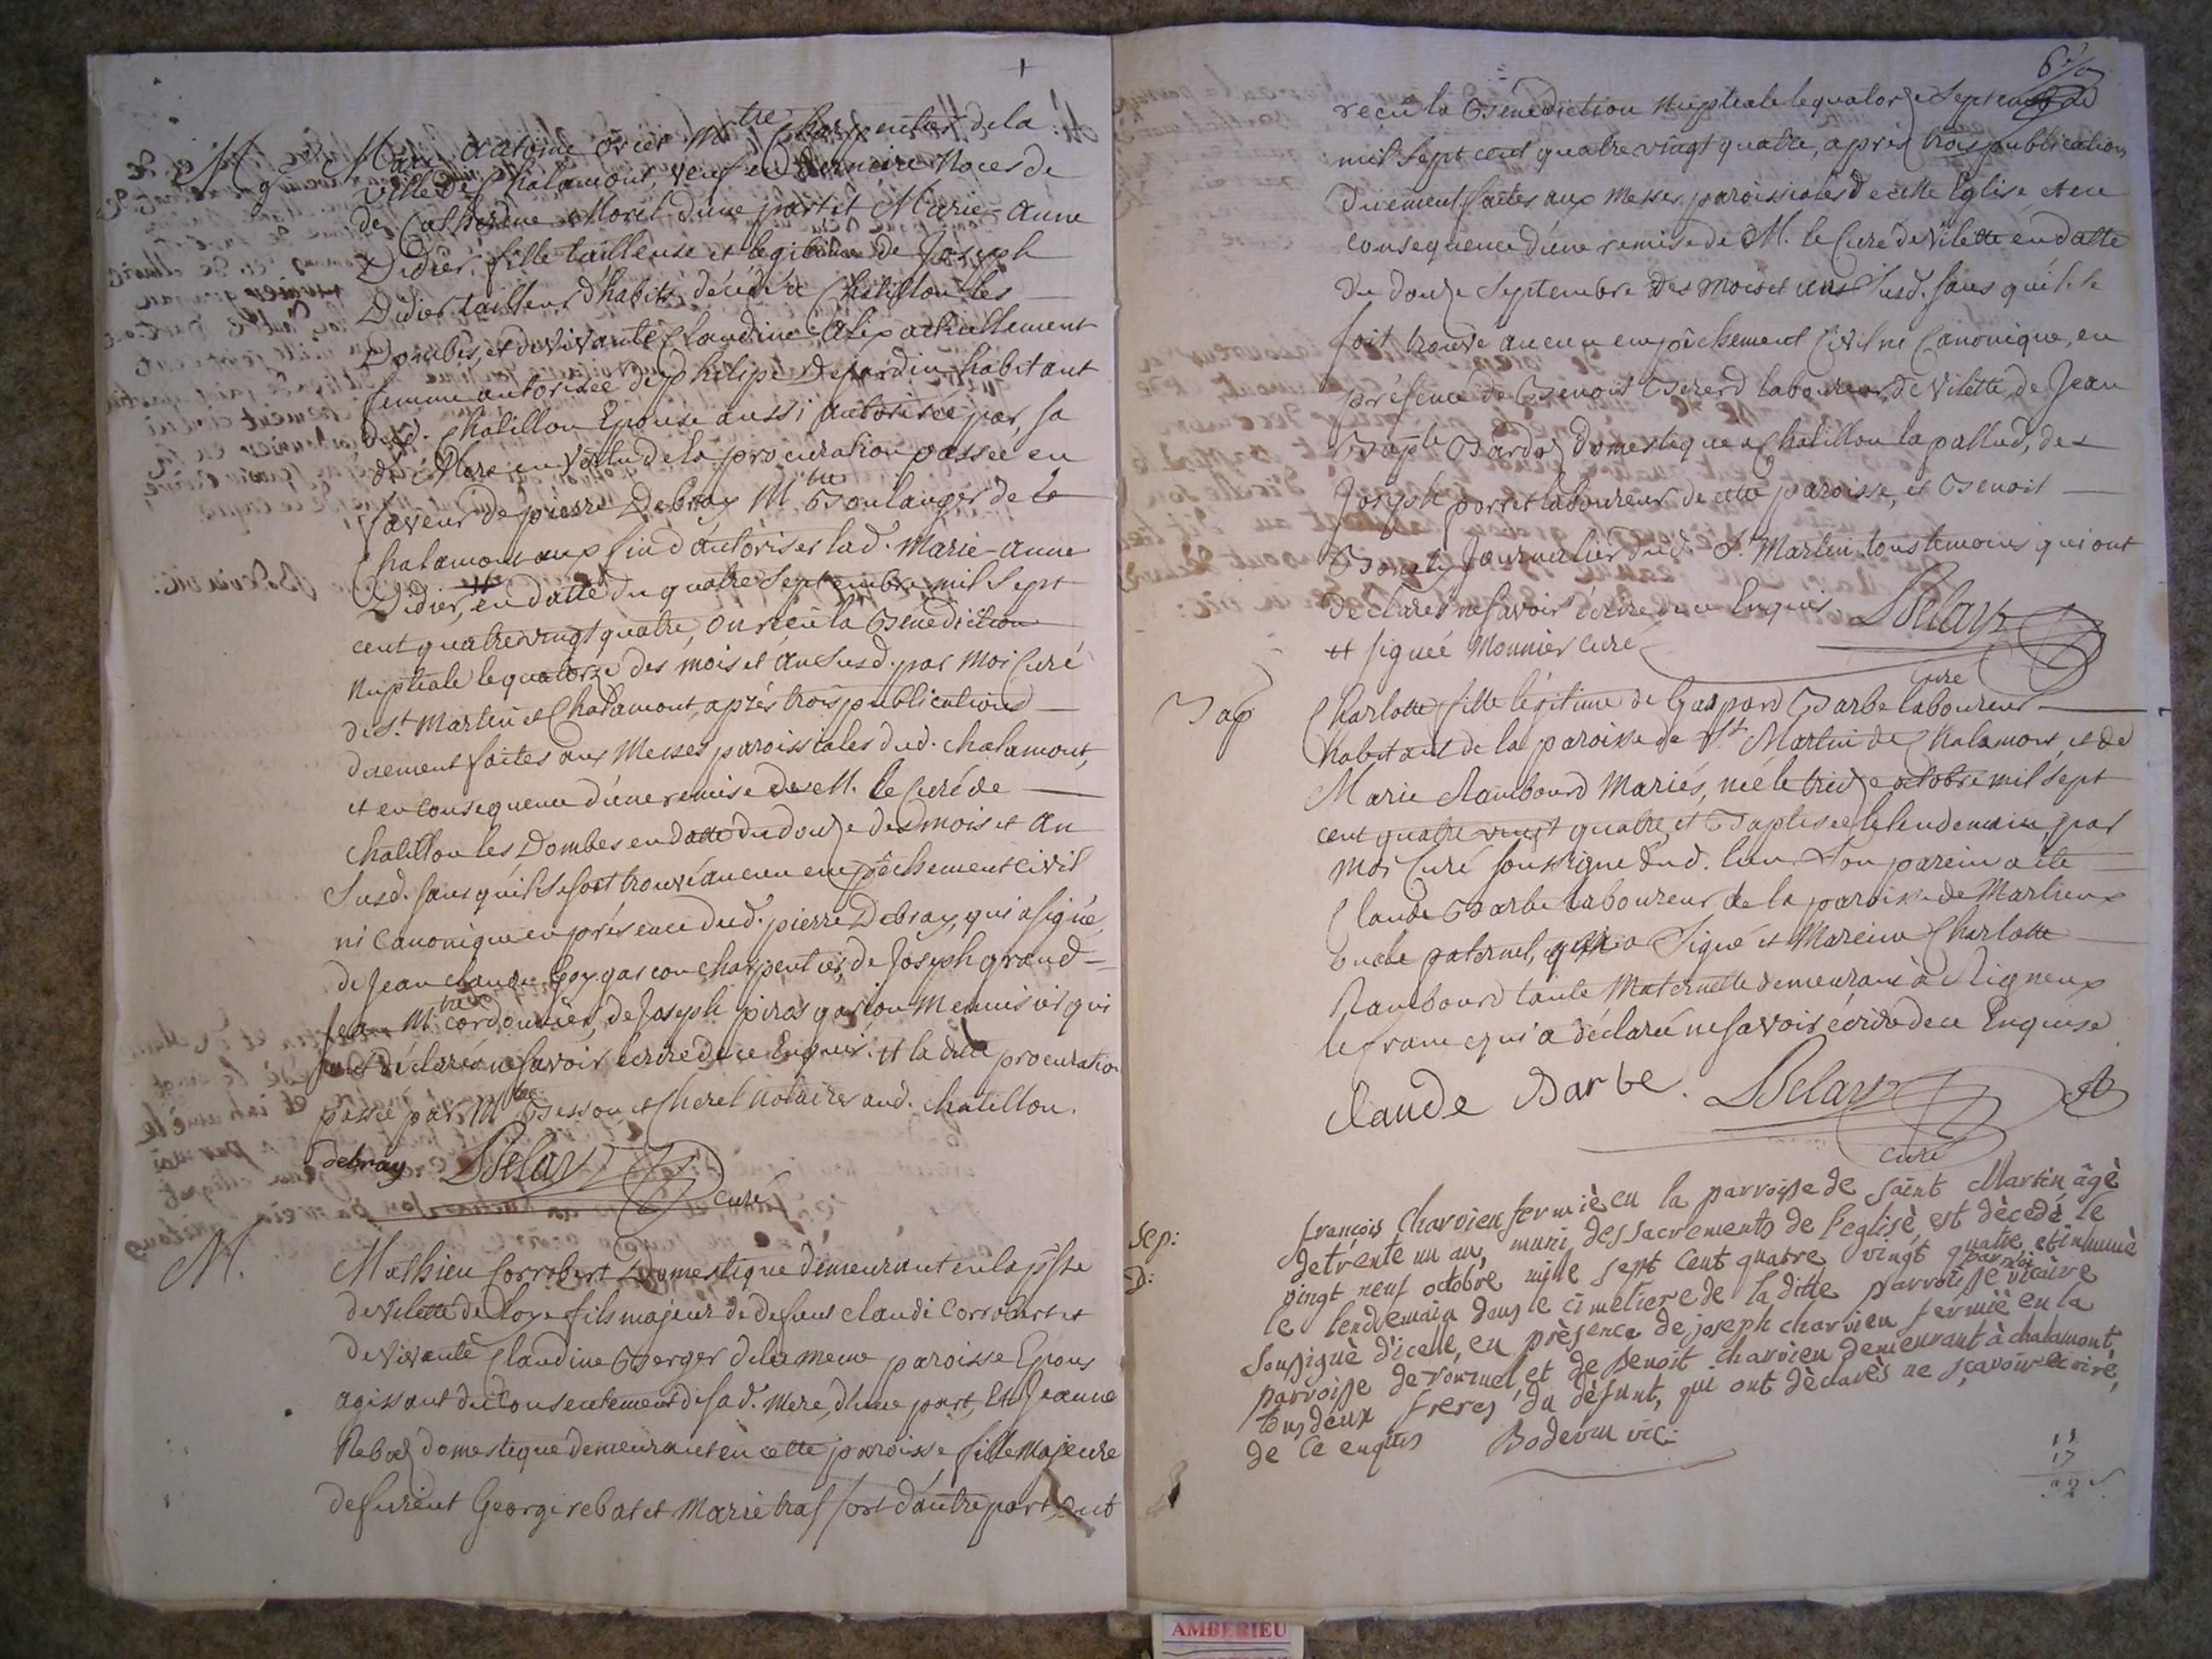 +
M g
Marc Antoine orcet M.tre Charpentier de la
ville de Chalamont, veuf en derniere Noces de
de Catherine Morel d'une part et Marie-Anne
Didier, fille tailleuse et legitime de Joseph
Didier tailleur d'habits décédé a Châtillon les
Dombes, et de vivante Claudine Alix actuellement
femme autorisée de philipe Dejardin habitant
dud. Chatillon Epouse aussi autorisée par sa
de Mere en vertu de la procuration passée en
faveur de pierre Debray M.tre Boulanger de
Chalamont aux fin d'autoriser lad. Marie-Anne
Didier, en datte du quatre Septembre mil Sept
cent quatre vingt quatre, ont reçu la Bénédiction
Nuptiale le quatorze des mois et an susd. par Moi Curé
de St. Martin et Chalamont, après trois publications
duement faites aux Messes paroissiales dud. chalamont,
et en consequence d'une remise de M. le Curé de
Chatillon les Dombes en datte du douze des mois et an
Susd. sans qu'il se soit trouvé aucun empêchement civil
ni Canonique en présence dud. pierre Debray, qui a signé,
de Jean claude Goy garçon charpentier, de Joseph grand-
Jean M.tre cordonnier, de Joseph piros garçon Menuisier qui
ont déclarés ne savoir écrire de ce Enquis. et la ditte procuration
passée par M.tre Besson et Cherel Notaires aud. chatillon.
debray Delary curé
M.
Mathieu Corrobert Domestique demeurant en la psse
de Vilette de Loye fils majeur de defunt claude Corrobert et
de vivante Claudine Berger de la meme paroisse Epoux
agissant du Consentement de sad. Mere, d'une part, Et Jeanne
Rebod domestique demeurant en cette paroisse fille Majeure
defunt George rebat et Marie traffort d'autre part ont
6e
reçu la Bénédiction Nuptiale le quatorze Septembre
mil sept cent quatre vingt quatre, après trois publications
Duement faites aux Messes paroissiales de cette Eglise, et en
consequence d'une remise de M. le Curé de Vilette en datte
du douze Septembre des mois et ans Susd. sans qu'il se
soit trouvé aucun empêchement Civil ni Canonique, en
présence de Benoit Bererd laboureur, de Vilette, de Jean
Bapte Bardoz domestique a Chatillon la pallud, de
Joseph porret laboureur de cette paroisse, et Benoit
Bonety Journalier dud. St. Martin tous temoins qui ont
Declarés ne savoir écrire de ce Enquis Delary
et signée Monnier Curé
Curé
Bap
Charlotte fille légitime de Gaspard Barbe laboureur
habitant de la paroisse de St. Martin de Chalamont, et de
Marie Rambourd Mariés, née le treize octobre mil sept
cent quatre vingt quatre, et Baptisée le lendemain par
moi Curé soussigné dud. lieu. Son parein a été
Claude Barbe laboureur de la paroisse de Marlieux
Oncle paternel, qui a Signé et Mareine Charlotte
Rambourd tante Maternelle demeurant à Rigneux
le franc qui a déclarée ne savoir écrire de ce Enquise
Claude Barbe. Delary
curé
Sep:
D:
françois charvieu fermiè en la parroisse de saint Martin âgè
de trente un an, muni des sacrements de l'eglise, est dècedé le
vingt neuf octobre mille sept cent quatre vingt quatre et inhumè
le lendemain dans le cimetiere de la ditte parroisse par moi vicaire
soussignè d'icelle, en prèsence de joseph charvieu fermiè en la
parroisse de ronzuel et de benoit charvieu demeurant à chalamont,
tous deux freres du dèfunt, qui ont dèclarès ne sçavoir ecrire,
de ce enquis Bodevin vic:
11
17
AMBERIEU